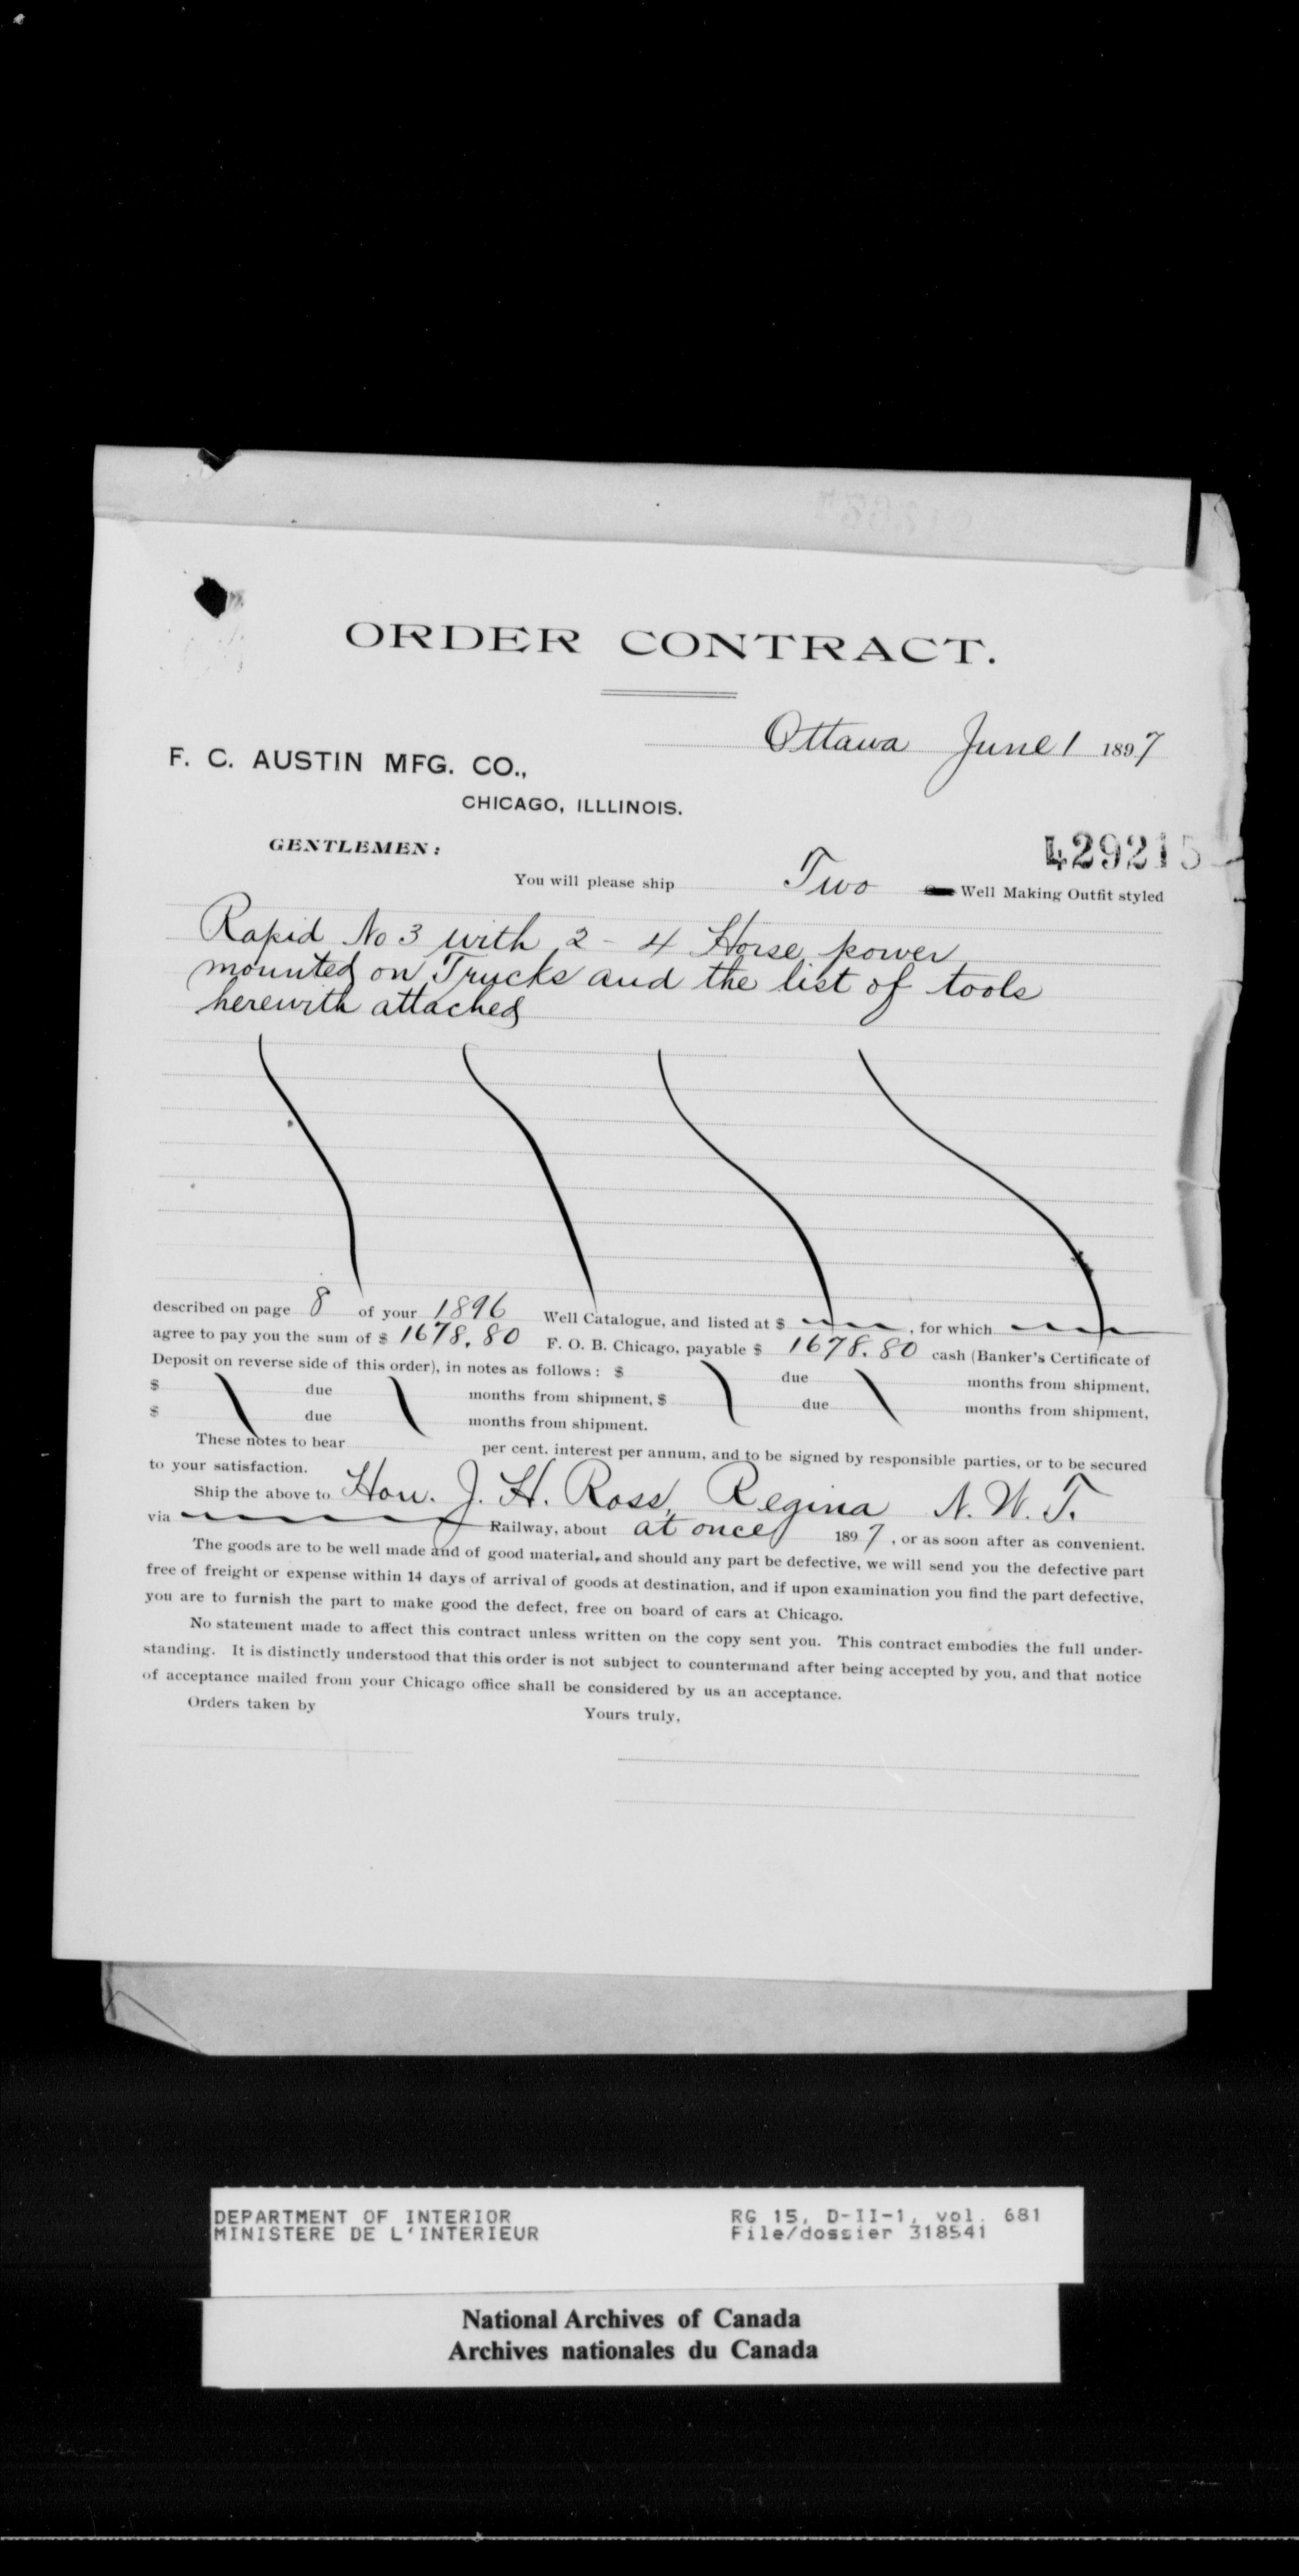 ORDER CONTRACT.
Ottawa June 1 1897
F. C. AUSTIN MFG. CO.,
CHICAGO, ILLLINOIS.
429215
GENTLEMEN:
You will please ship Two Well Making Outfit styled
Rapid No 3 with 2 - 4 Horse power
mounted on Trucks and the list of tools
herewith attached
described on page 8 of your 1896 Well Catalogue, and listed at $ , for which
agree to pay you the sum of $ 1678.80 F. O. B. Chicago, payable $ 1678.80 cash (Banker's Certificate of
Deposit on reverse side of this order), in notes as follows: $ due months from shipment,
$ due months from shipment, $ due months from shipment,
$ due months from shipment.
These notes to bear per cent. interest per annum, and to be signed by responsible parties, or to be secured
to your satisfaction.
Ship the above to Hon. J. H. Ross, Regina N. W. T.
via Railway, about at once 1897, or as soon after as convenient.
The goods are to be well made and of good material, and should any part be defective, we will send you the defective part
free of freight or expense within 14 days of arrival of goods at destination, and if upon examination you find the part defective,
you are to furnish the part to make good the defect, free on board of cars at Chicago.
No statement made to affect this contract unless written on the copy sent you. This contract embodies the full under-
standing. It is distinctly understood that this order is not subject to countermand after being accepted by you, and that notice
of acceptance mailed from your Chicago office shall be considered by us an acceptance.
Orders taken by Yours truly,
DEPARTMENT OF INTERIOR RG 15, D-II-1, vol. 681
MINISTERE DE L'INTERIEUR File/dossier 318541
National Archives of Canada
Archives nationales du Canada